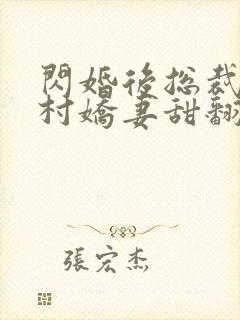 閃婚後總裁
村嬌妻甜翻
張宏杰